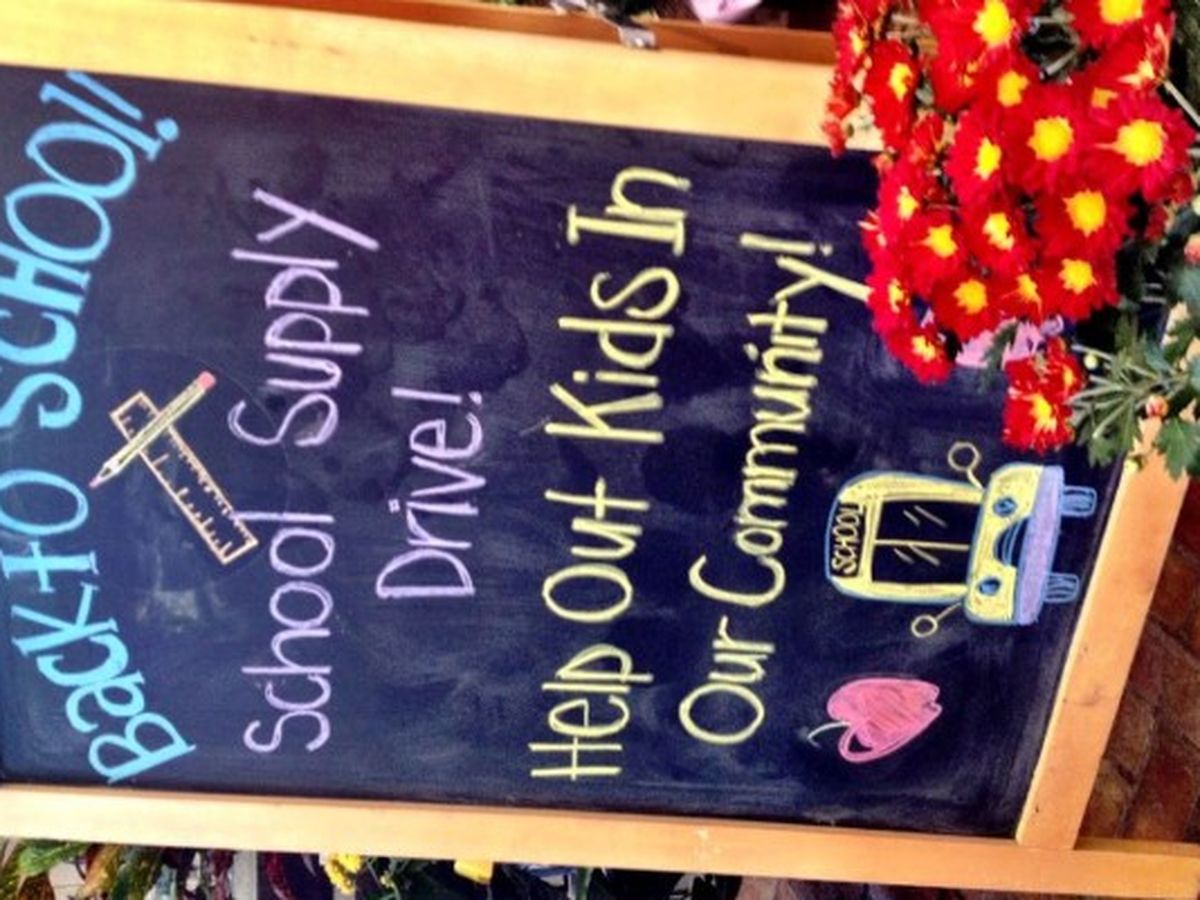 Back-to SCHOOL!!
School Supply
Drive!
Help Out Kids In
Our Community!
SCHOOL